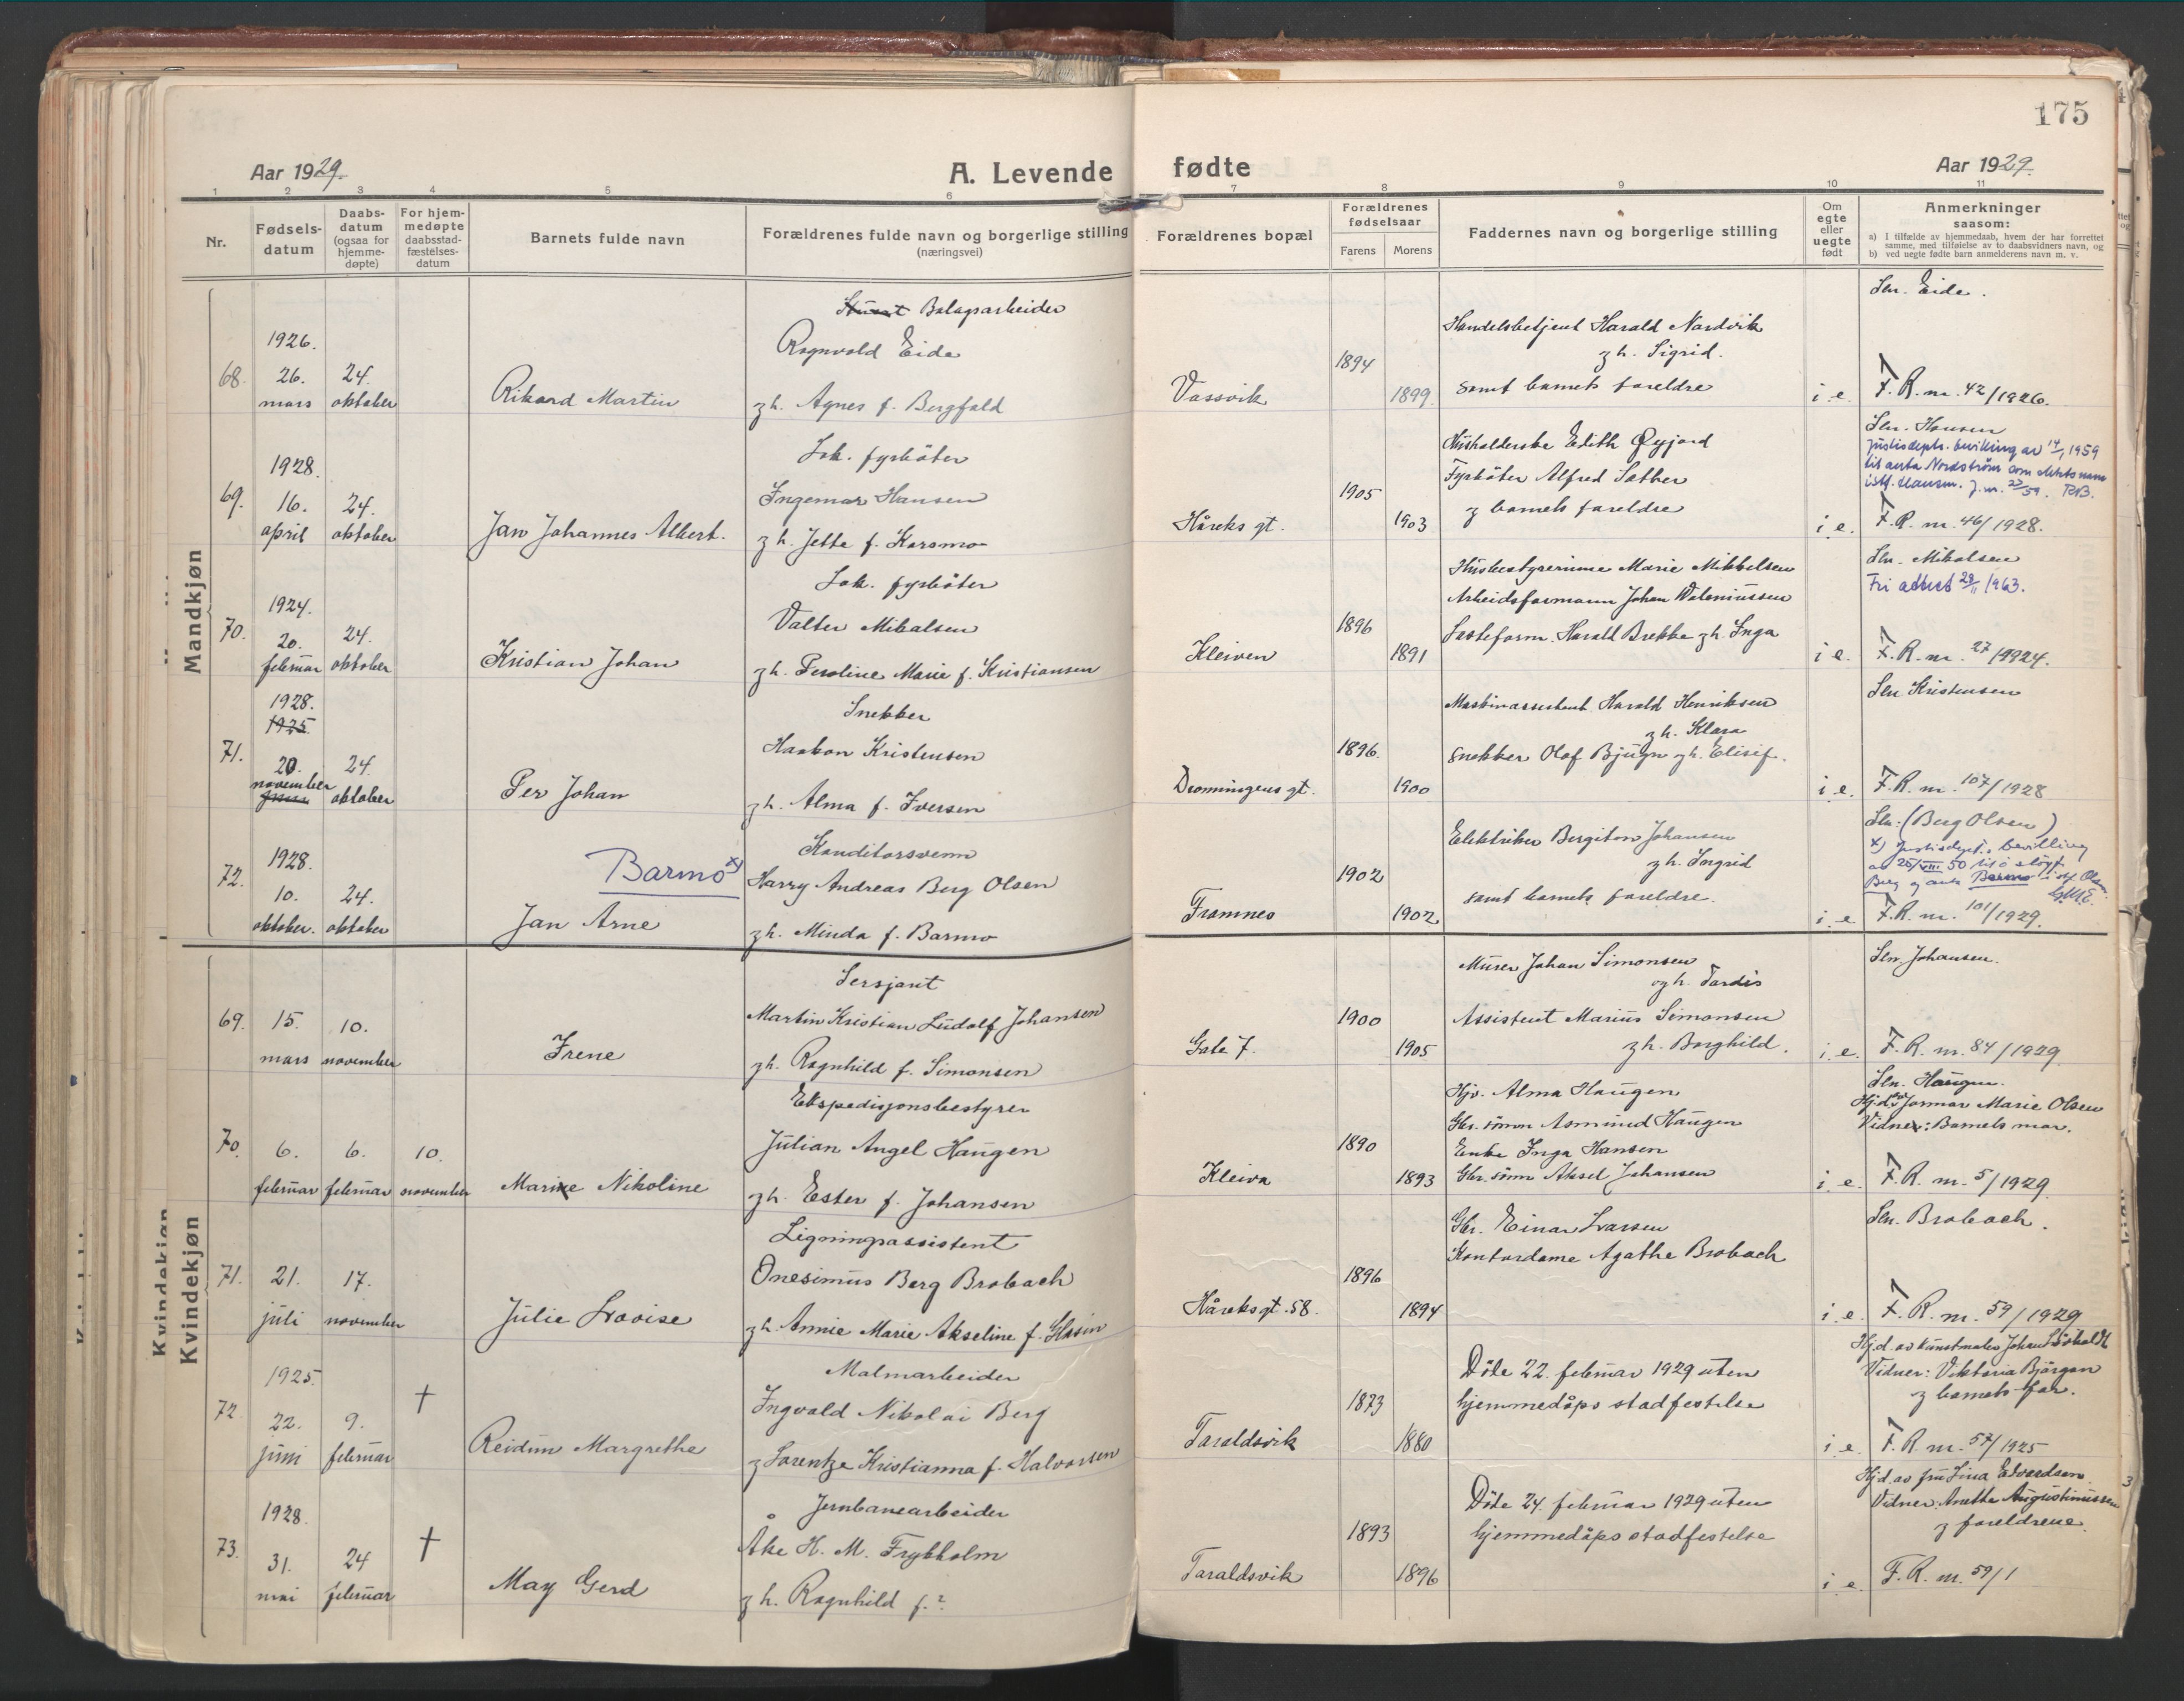 175
Aar 1929.
A. Levende fødte
Aar 1929.
1 2 3 4 5 6 7 8 9 10 11
Nr.
Fødsels-
datum
Daabs-
datum
(ogsaa for
hjemme-
døpte)
For hjem-
medøpte
daabsstad-
fæstelses-
datum
Barnets fulde navn
Forældrenes fulde navn og borgerlige stilling
(næringsvei)
Forældrenes bopæl
Forældrenes
fødselsaar
Farens Morens
Faddernes navn og borgerlige stilling
Om
egte
eller
uegte
født
Anmerkninger
saasom:
a) I tilfælde av hjemmedaab, hvem der har forrettet
samme, med tilføielse av to daabsvidners navn, og
b) ved uegte fødte barn anmelderens navn m. v.
Mandkjøn
68.
1926.
26.
mars
24.
oktober
Rikard Martin
Bolagsarbeider
Ragnvald Eide
g h. Agnes f. Bergfald
Vassvik
1894
1899.
Handelsbetjent Harald Nordvik
g h. Sigrid.
samt barnets foreldre
i. e.
Sln. Eide.
F. R. nr. 42/1926.
69.
1928.
16.
april
24.
oktober
Jan Johannes Albert.
Lok. fyrbøter
Ingemar Hansen
g h. Jette f. Karsmo
Håreks gt.
1905
1903
Husholderske Edith Øyjord
Fyrbøter Alfred Sæther
g barnets foreldre
i e.
Sln. Hansen
Justisdeptr. bevilling av 14/1 1959
til anta Nordstrøm som slektsnavn
istf. Hansen. J.nr. 23/59. RB.
F. R. nr. 46/1928.
70.
1924.
20.
februar
24.
oktober
Kristian Johan
Lok. fyrbøter
Valter Mikalsen
g h. Peroline Marie f. Kristiansen
Kleiven
1896
1891
Husbestyrerinne Marie Mikkelsen
Arbeidsformann Johan
Harald Brekke g h. Inga
i e.
Sln. Mikalsen
Fri attest 29/11 1963.
F. R. nr. 27/1924.
71.
1928.
1925.
20.
november
24.
oktober
Per Johan
Snekker
Haakon Kristensen
g h. Alma f. Iversen
Dronningens gt.
1896.
1900
Maskinassistent Harald Henriksen
g h. Klara
snekker Olaf Bjugn g h. Elisif.
i. e.
Sln Kristensen
F. R. nr. 107/1928
72.
1928.
10.
oktober.
24.
oktober
Barmo x)
Jan Arne
Konditorsvenn
Harry Andreas Berg Olsen
g h. Minda f. Barmo
Framnes
1902
1902
Elektriker Bergiton Johansen
g h. Ingrid
samt barnets foreldre.
i. e
Sln: (Berg Olsen)
x) Justisdept.s bevilling
av 25/VIII 50 til å sløyfe
Berg og anta Barmo istf Olsen.
F. R. nr. 101/1929.
Kvindekjøn
69.
15.
mars
10.
november
Irene
Sersjant
Martin Kristian Ludolf Johansen
g h. Ragnhild f. Simonsen
Gate 7.
1900
1905
Murer Johan Simonsen
og h. Tardis
Assistent Marius Simonsen
g h. Borghild.
i. e.
Sln. Johansen.
F. R. nr. 84/1929
70.
6.
februar
6.
februar
10.
november
Marine Nikoline
Ekspedisjonsbestyrer
Julian Angel Haugen
g h. Ester f. Johansen
Kleiva
1890
1893
Hjv. Alma Haugen
Gbr. sønn Asmund Haugen
Enke Inga Hansen
Gbr. sønn Aksel Johansen
i e.
Sln. Haugen.
Hjd. av Jormor Marie Olsen
Vidne: Barnets mor.
F. R. nr. 5/1929
71.
21.
juli
17.
november
Julie Lovise
Ligningsassistent
Onesimus Berg Brobach
g h. Annie Marie Akseline f. Hasin
Håreksgt. 58.
1896
1894
Gbr. Einar Larsen
Kontordame Agathe Brobach
i e.
Sln. Brobach.
F. R. nr. 59/1929
72.
1925.
22.
juni
9.
februar
†
Reidun Margrethe
Malmarbeider
Ingvald Nikolai Berg
g Lorentze Kristianna f. Halvorsen
Taraldsvik
1873
1880
Døde 22. februar 1929 uten
hjemmedåps stadfestelse
i e.
Hjd. av kunstmaler Johan
Vidner: Viktoria Bjørgan
g barnets far.
F. R. nr. 57/1925
73.
1928.
31.
mai
24
februar
†
May Gerd
Jernbanearbeider
Åke H. M. Frykholm
g h. Ragnhild f. ?
Taraldsvik
1893
1896
Døde 24. februar 1929 uten
hjemmedåps stadfestelse
i e.
Hjd. av fru Lina Edvardsen.
Vidner: Anette Augustinussen
g foreldrene.
F. R. nr. 59/1